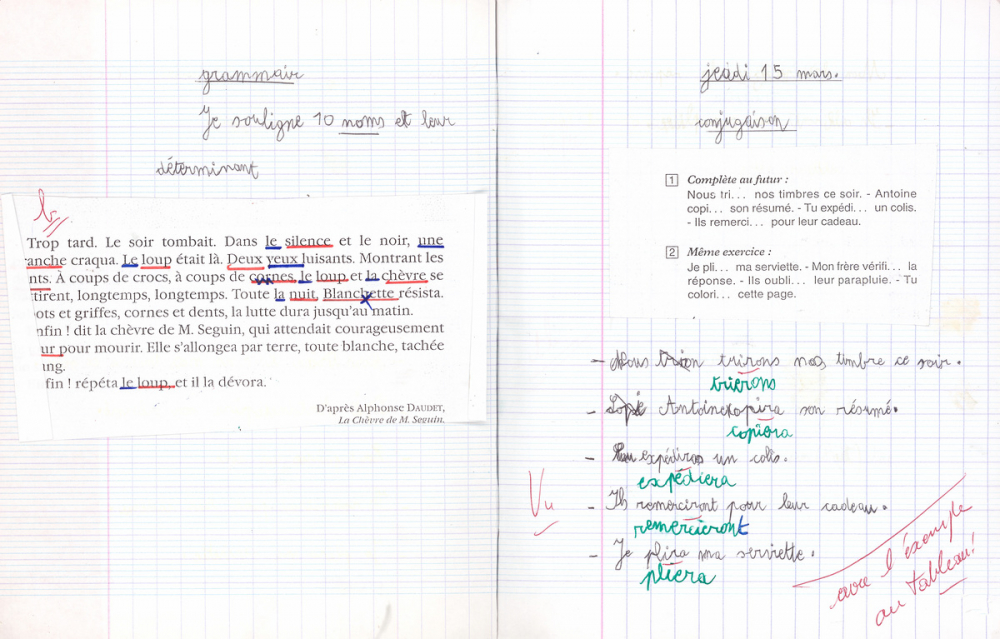 grammair
Je souligne 10 noms et leur
déterminant
Trop tard. Le soir tombait. Dans le silence et le noir, une
anche craqua. Le loup était là. Deux yeux luisants. Montrant les
nts. À coups de crocs, à coups de cornes, le loup et la chèvre se
tirent, longtemps, longtemps. Toute la nuit, Blanchette résista.
ots et griffes, cornes et dents, la lutte dura jusqu'au matin.
nfin ! dit la chèvre de M. Seguin, qui attendait courageusement
ur pour mourir. Elle s'allongea par terre, toute blanche, tachée
ng.
fin ! répéta le loup, et il la dévora.
D'après Alphonse DAUDET,
La Chèvre de M. Seguin.
jeudi 15 mars.
conjugaison
1 Complète au futur :
Nous tri... nos timbres ce soir. - Antoine
copi... son résumé. - Tu expédi... un colis.
- Ils remerci... pour leur cadeau.
2 Même exercice :
Je pli... ma serviette. - Mon frère vérifi... la
réponse. - Ils oubli... leur parapluie. - Tu
colori... cette page.
- Nous trirons nos timbre ce soir.
trierons
- Antoine copira son résumé.
copiera
- expédiras un colis.
expédiera
Vu
- Ils remerciront pour leur cadeau.
remercieront
- Je plira ma serviette.
pliera
avec l'exemple
au tableau!